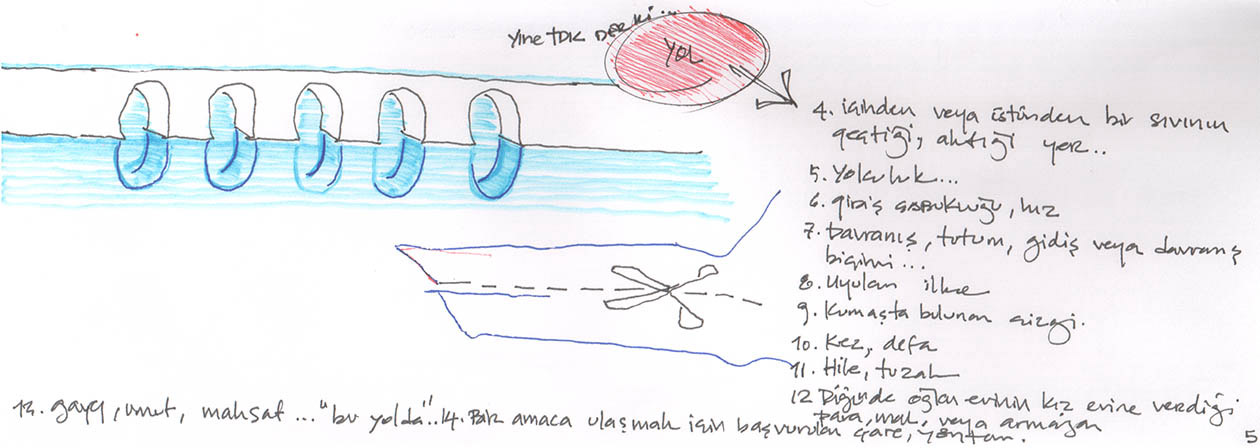 Yine TDK DER Ki...
YOL
4. içinden veya üstünden bir sıvının
geçtiği, aktığı yer..
5. Yolculuk...
6. giriş çabukluğu, hız
7. Davranış, tutum, gidiş veya davranış
biçimi...
8. Uyulan ilke
9. Kumaşta bulunan çizgi.
10. Kez, defa
11. Hile, tuzak
12 Düğünde oğlan evinin kız evine verdiği
para, mal, veya armağan
13. gaye, umut, maksat ... "bu yolda".. 14. Bir amaca ulaşmak için başvurulan çare, yöntem.
5